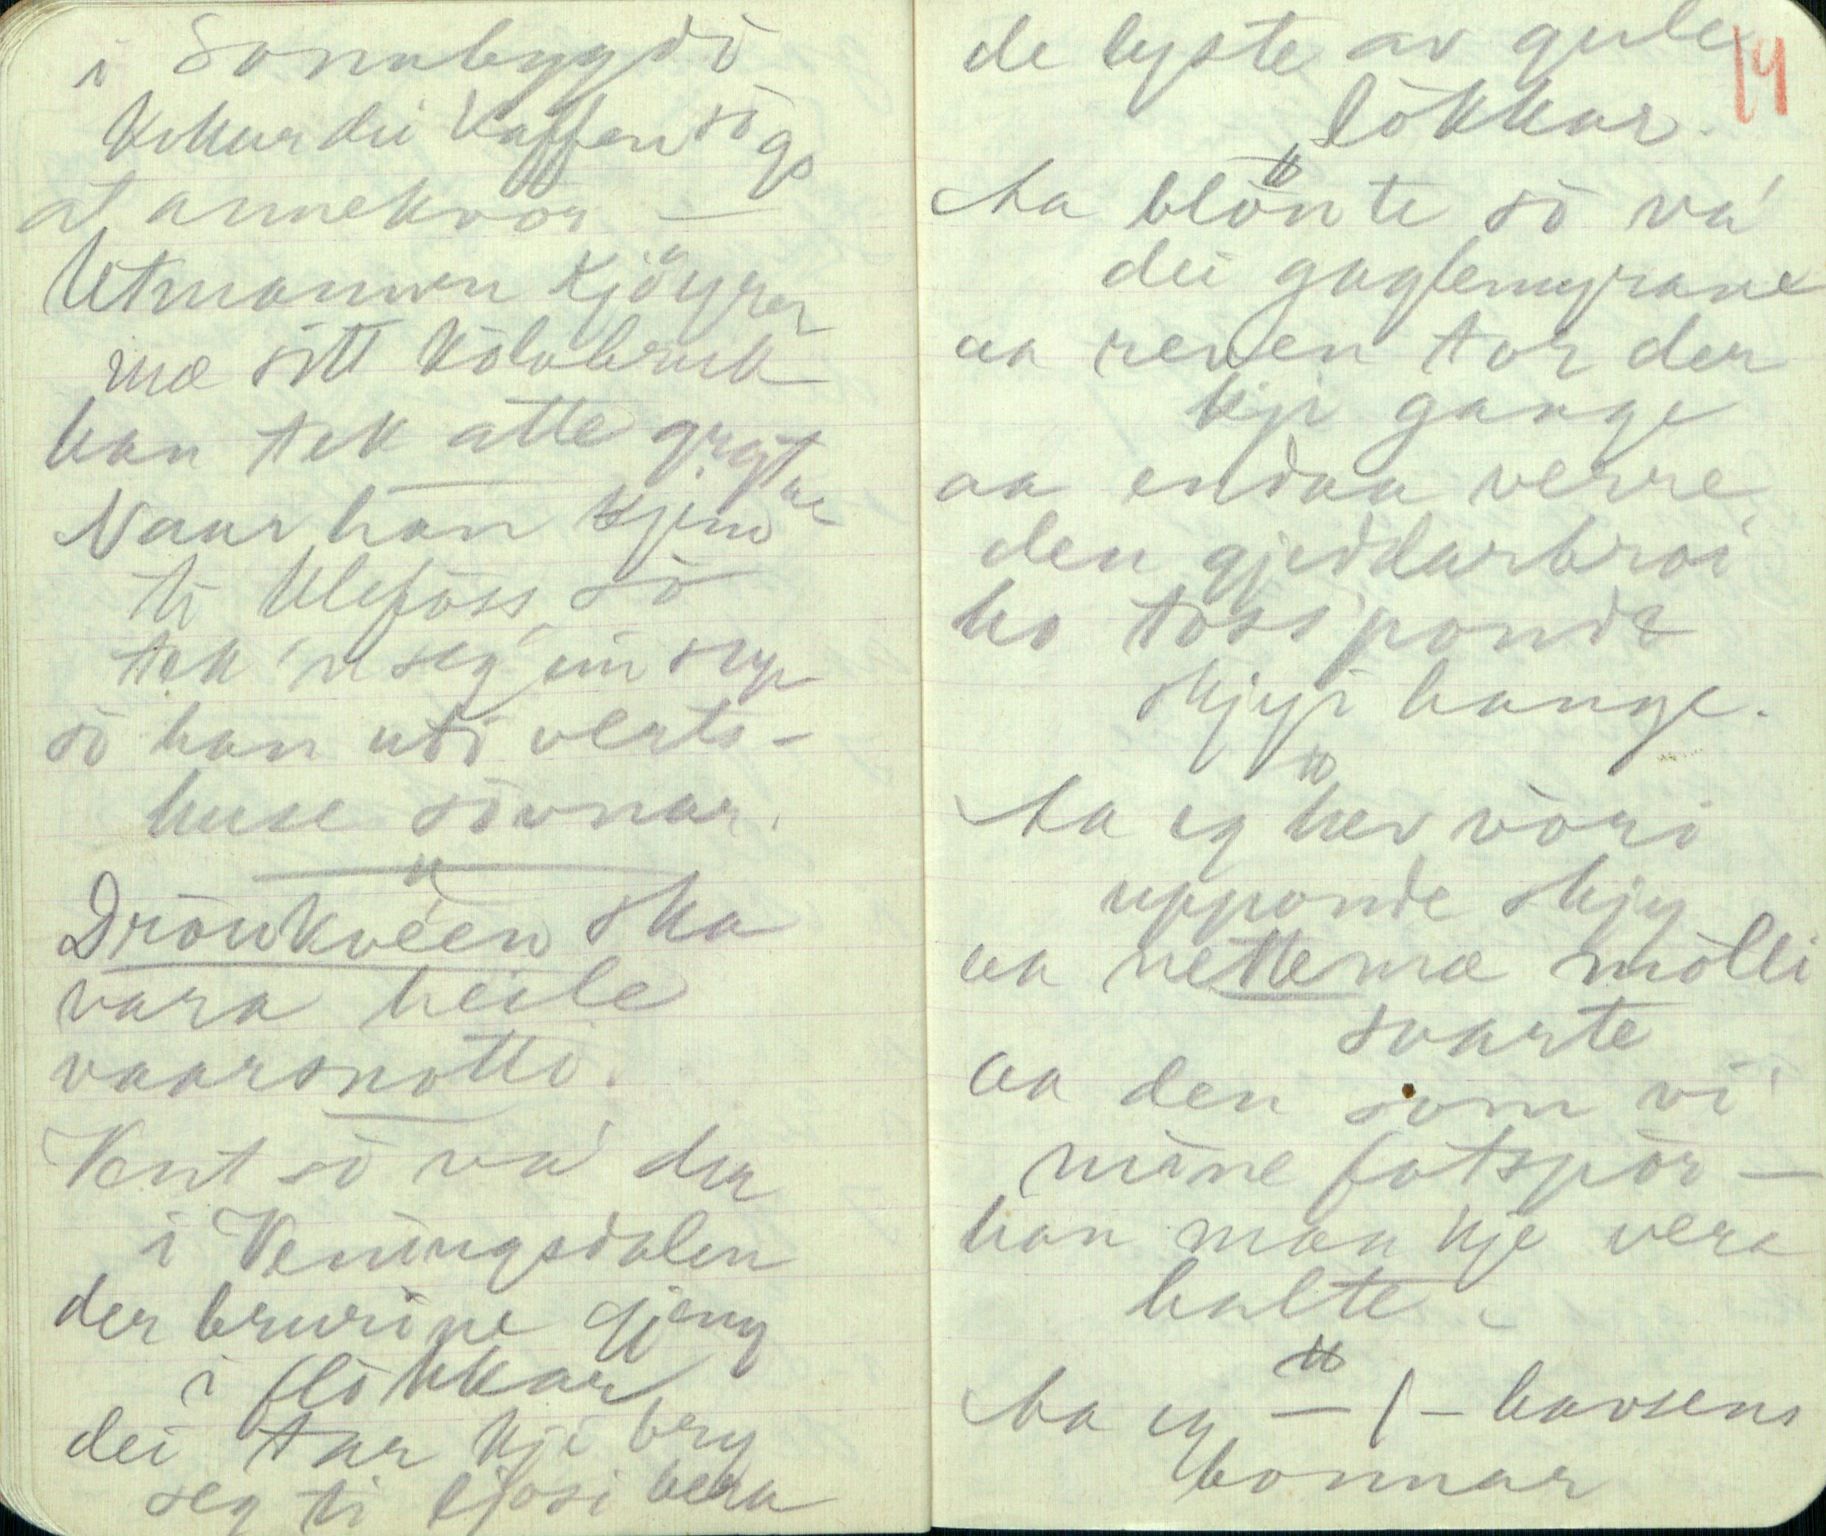 i Sonnbygdò
Kokar dei kaffen sò go
at annekvor —
Utmannen kjöyrer
mæ sitt kòlabruk
han tek atte grjótne
Naar han kjem
ti Ulefoss, sò
tek 'n seg ein sup
sò han uti verts-
huse sòvnar.
Dromkvæen ska
vara heile
vaarsnotti.
Vent sò va' der
i Veningsdalen
der brurine gjeng
i flòkkar
dei tar kje bry
seg ti ljosi bera
de lyste av gule
lòkkar.
14
Aa blònte sò va'
dei gaglemyrane
aa reven tor der
kje gange
aa endaa verre
den gjeddarbroi
ho toss'ponde
skjyi hange.
Aa eg hev vòri
upponde skjy
aa nettemæ mòlli
svarte
aa den som vi'
mine fotspòr —
han maa kje vera
halte.
Aa eg — (— havsens
bonnar